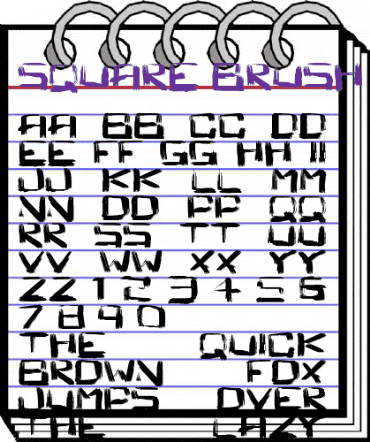 SQUARE BRUSH
AA BB CC DD
EE FF GG HH II
JJ KK LL MM
NN OO PP QQ
RR SS TT UU
VV WW XX YY
ZZ 1 2 3 4 5 6
7 8 9 0
THE QUICK
BROWN FOX
JUMPS OVER
THE LAZY